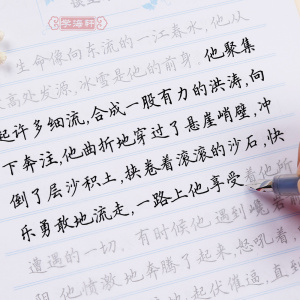 字海轩
生命像向东流的一江春水,他从
高处发源,冰雪是他的前身.他聚集
起许多细流,合成一股有力的洪涛,向
下奔注,他曲折地穿过了悬崖峭壁,冲
倒了层沙积土,挟卷着滚滚的沙石,快
乐勇敢地流走,一路上他享受
着他所
遭遇的一切。有时候他遇到巉岩
他情激地奔腾了起来,怒吼着
起伏催逼,直到